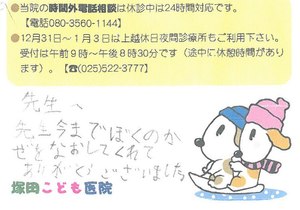 ●当院の時間外電話相談は休診中は24時間対応です。
【電話080-3560-1144】
●12月31日～1月3日は上越休日夜間診療所もご利用下さい。
受付は午前9時～午後8時30分です（途中に休憩時間があり
ます）。【☎(025)522-3777】
先生へ
先生今までぼくのか
ぜをなおしてくれて
ありがとうございました
塚田こども医院